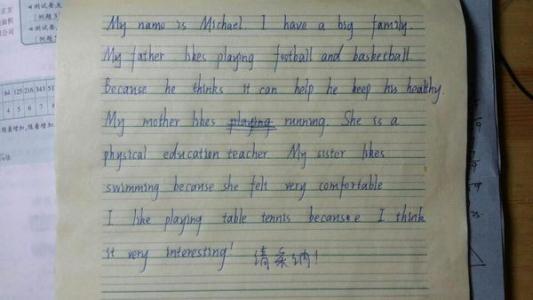 My name is Michael. I have a big family.
My father likes playing football and basketball.
Because he thinks it can help he keep his healthy.
My mother likes playing running. She is a
physical education teacher. My sister likes
swimming because she felt very comfortable
I like playing table tennis because I think
it very interesting!
请采纳!
64 125 216 343 51
4 5 6 7 8